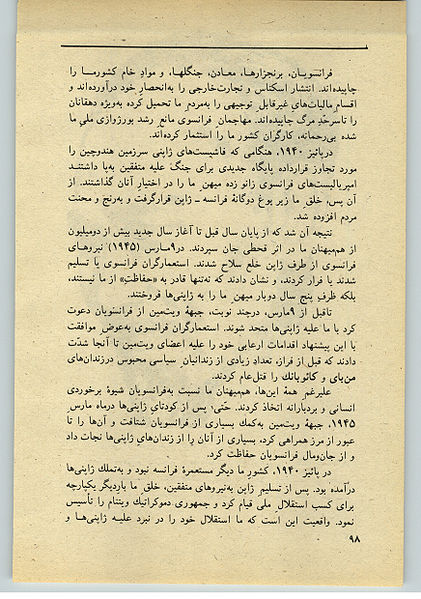 فرانسویان، برنجزارها، معادن، جنگلها، و مواد خام کشورمـا را
چاپیده‌اند. انتشار اسکناس و تجارت‌خارجی را به‌انحصار خود درآورده‌اند و
اقسام مالیات‌های غیرقابل توجیهی را به‌مردم ما تحمیل کرده به‌ویژه دهقانان
را تاسرحد مرگ چاپیده‌اند. مهاجمان فرانسوی مانع رشد بورژوازی ملی ما
شده بی‌رحمانه، کارگران کشور ما را استثمار کرده‌اند.
درپائیز ۱۹۴۰، هنگامی که فاشیست‌های ژاپنی سرزمین هندوچین را
مورد تجاوز قرارداده پایگاه جدیدی برای جنگ علیه متفقین به‌پا داشتند
امپریالیست‌های فرانسوی زانو زده میهن ما را در اختیار آنان گذاشتند. از
آن پس، خلق ما زیر یوغ دوگانهٔ فرانسه ـ ژاپن قرارگرفت و به‌رنج و محنت
مردم افزوده شد.
نتیجه آن شد که از پایان سال قبل تا آغاز سال جدید بیش از دومیلیون
از هم‌میهنان ما در اثر قحطی جان سپردند. در۹مارس (۱۹۴۵) نیروهای
فرانسوی از طرف ژاپن خلع سلاح شدند. استعمارگران فرانسوی یا تسلیم
شدند یا فرار کردند، و نشان دادند که نه‌تنها قادر به «حفاظت» از ما نیستند،
بلکه ظرف پنج سال دوبار میهن ما را به ژاپنی‌ها فروختند.
تاقبل از ۹مارس، درچند نوبت، جبههٔ ویت‌مین از فرانسویان دعوت
کرد با ما علیه ژاپنی‌ها متحد شوند. استعمارگران فرانسوی به‌عوض موافقت
با این پیشنهاد اقدامات ارعابی خود را علیه اعضای ویت‌مین تا آنجا شدّت
دادند که قبل از فرار، تعداد زیادی از زندانیان سیاسی محبوس درزندان‌های
من‌بای و کائوبانگ را قتل‌عام کردند.
علیرغم همهٔ این‌ها، هم‌میهنان ما نسبت به‌فرانسویان شیوهٔ برخوردی
انسانی و بردبارانه اتخاذ کردند. حتّی، پس از کودتای ژاپنی‌ها درماه مارس
۱۹۴۵، جبههٔ ویت‌مین به‌کمك بسیاری از فرانسویان شتافت و آن‌ها را تا
عبور از مرز همراهی کرد، بسیاری از آنان را از زندان‌های ژاپنی‌ها نجات داد
و از جان‌ومال فرانسویان حفاظت کرد.
در پائیز ۱۹۴۰، کشور ما دیگر مستعمرهٔ فرانسه نبود و به‌تملك ژاپنی‌ها
درآمده بود. پس از تسلیم ژاپن به‌نیروهای متفقین، خلق ما باردیگر یکپارچه
برای کسب استقلال ملی قیام کرد و جمهوری دموکراتیك ویتنام را تأسیس
نمود. واقعیت این است که ما استقلال خود را در نبرد علیه ژاپنی‌ها و
۹۸